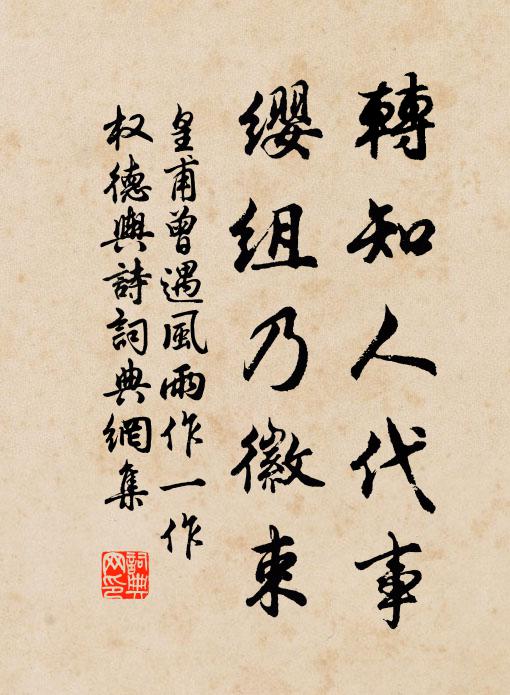 轉知人代事
纓組乃徽束
皇甫曾遇風雨作一作
权德輿詩詞典網集
詞典
网印